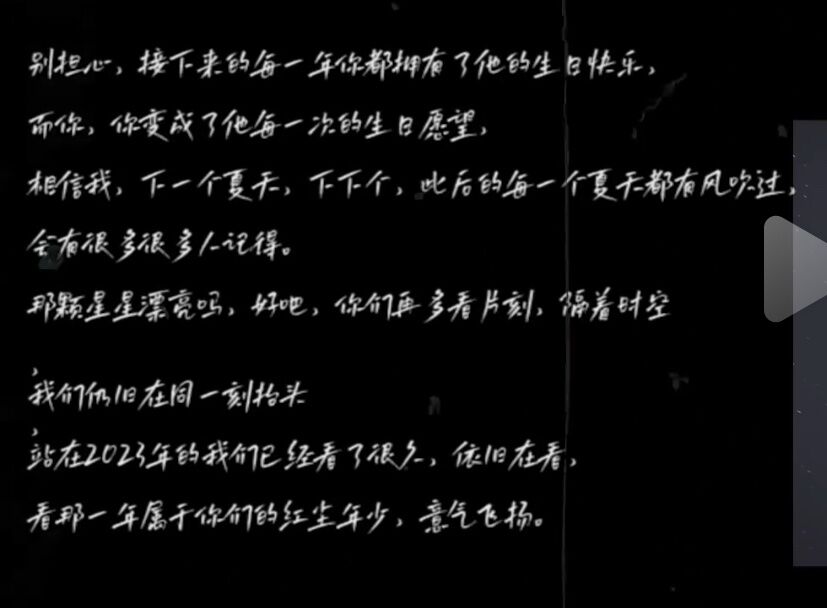 别担心，接下来的每一年你都拥有了他的生日快乐，
而你，你变成了他每一次的生日愿望，
相信我，下一个夏天，下下个，此后的每一个夏天都有风吹过，
会有很多很多人记得。
那颗星星漂亮吗，好吧，你们再多看片刻，隔着时空
，
我们仍旧在同一刻抬头
，
站在2023年的我们已经看了很久，依旧在看，
看那一年属于你们的红尘年少，意气飞扬。